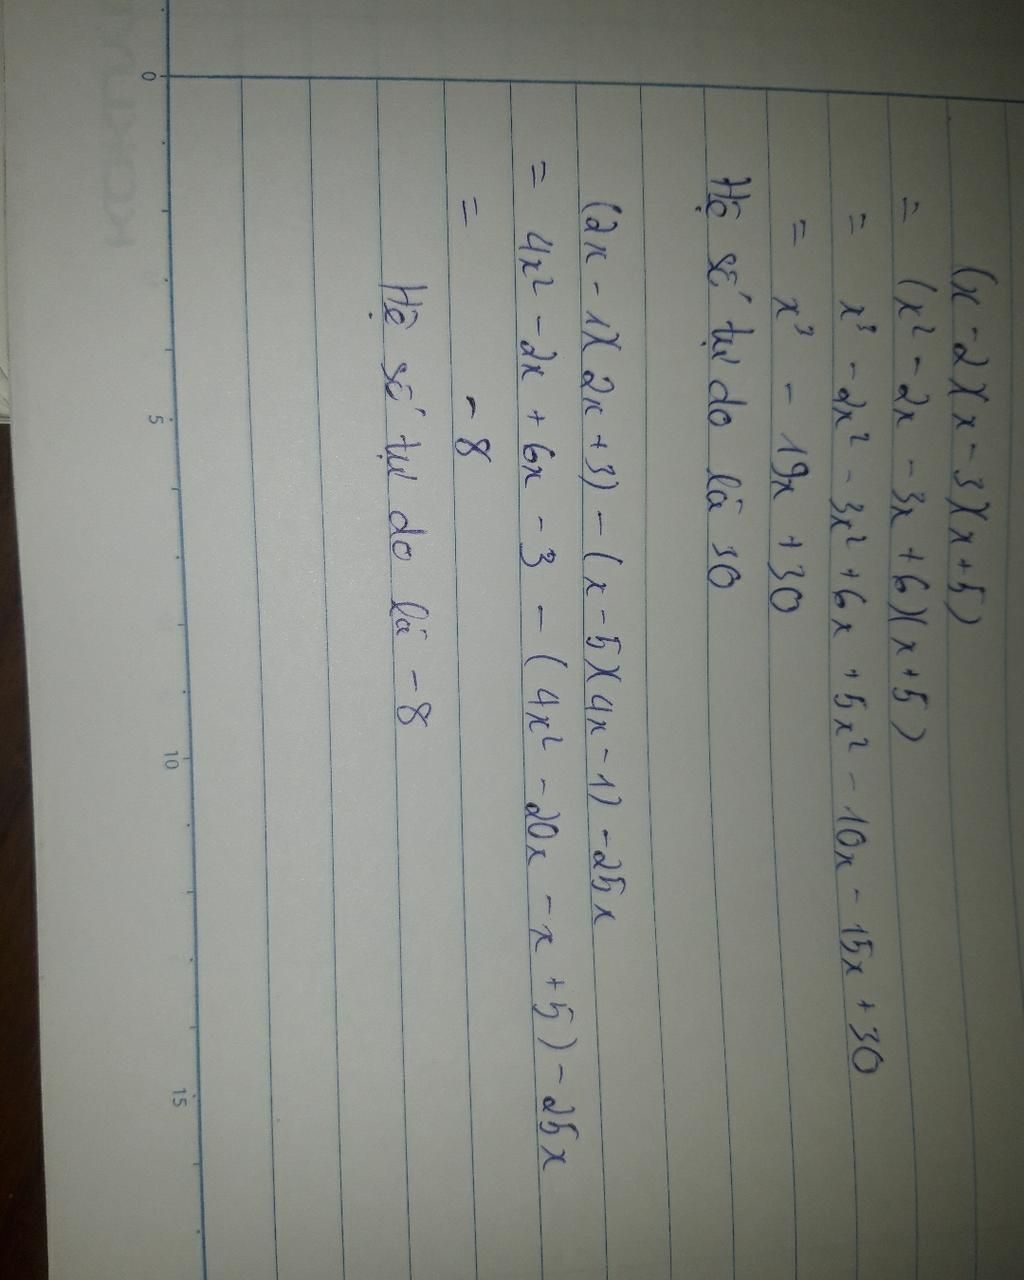 (x - 2)(x - 3)(x + 5)
= (x² - 2x - 3x + 6)(x + 5)
= x³ - 2x² - 3x² + 6x + 5x² - 10x - 15x + 30
= x³ - 19x + 30
Hệ số tự do là 30
(2x - 1)(2x + 3) - (x - 5)(4x - 1) - 25x
= 4x² - 2x + 6x - 3 - (4x² - 20x - x + 5) - 25x
= - 8
Hệ số tự do là - 8
0 5 10 15
KOKUYO